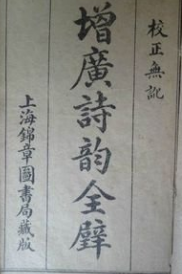 校正無訛
增廣詩韵全璧
上海錦章圖書局藏版